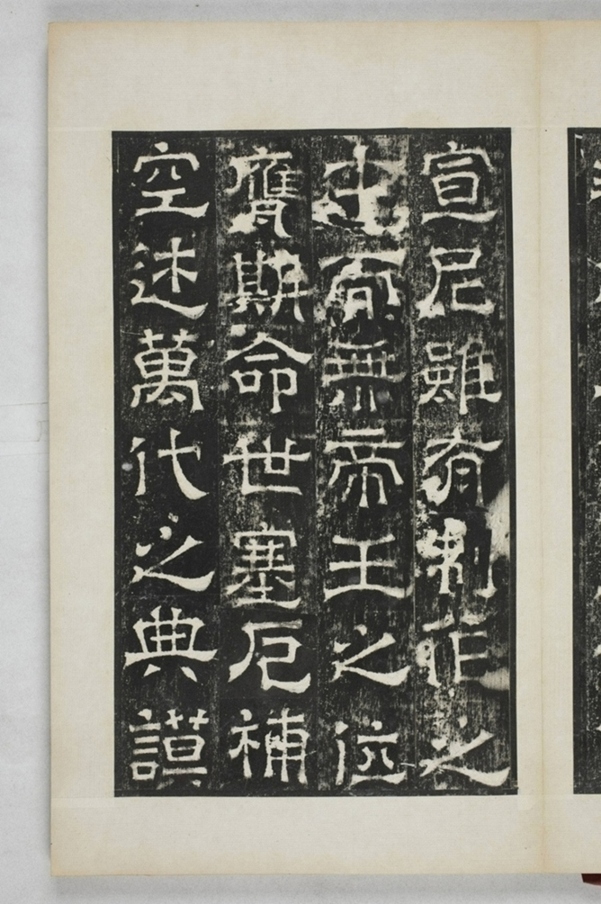 宣尼雖有制作之
而無帝王之位
膺斯命世塞厄補
空述萬代之典謨